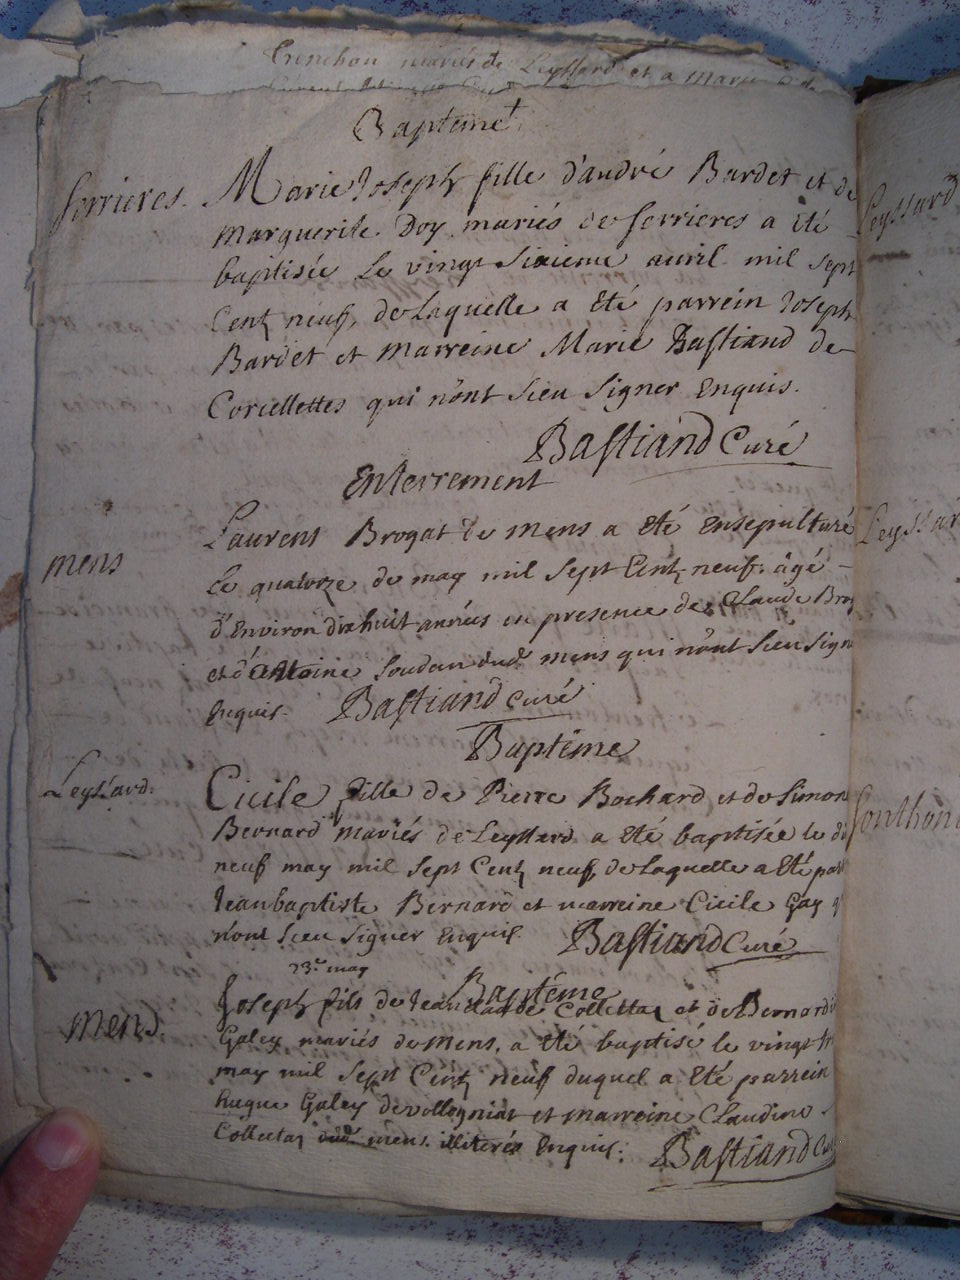 mariés de Leyssard et a
Baptême
ferrieres. Marie Joseph fille d'andré Bardet et de
Marguerite Doy mariés de ferrieres a êté
baptisée le vingt sixieme auril mil sept
Cent neuf, de Laquelle a êté parrein Joseph
Bardet et Marreine Marie Bastiand de
Corcellettes qui nônt sceu signer Enquis.
Bastiand Curé
Enterrement
mens Laurent Brogat de mens a êté ensepulturé
Le quatorze de may mil sept Cent neuf, âgé
d'Environ dix huit années en presence de Claude Brog
et d'Antoine Soudan dud. mens qui nônt sceu sign
Enquis. Bastiand curé
Baptême
Leyssard. Cicile fille de Pierre Bochard et de Simon
Bernard mariés de Leyssard a êté baptisée le di
neuf may mil sept Cent neuf, de Laquelle a êté par
Jeanbaptiste Bernard et marreine Cicile Gay q
nônt sceu signer Enquis. Bastiand Curé
23.e may
Baptême
Mens. Joseph fils de Jean Collettaz et de Bernard
Galey mariés de Mens, a êté baptisé le vingt tr
may mil sept Cent neuf duquel a êté parrein
hugue Galey de vollogniat et marreine Claudine
Collettaz dud. mens illiterés Enquis.
Bastiand Cu
Leyssard
Leyssar